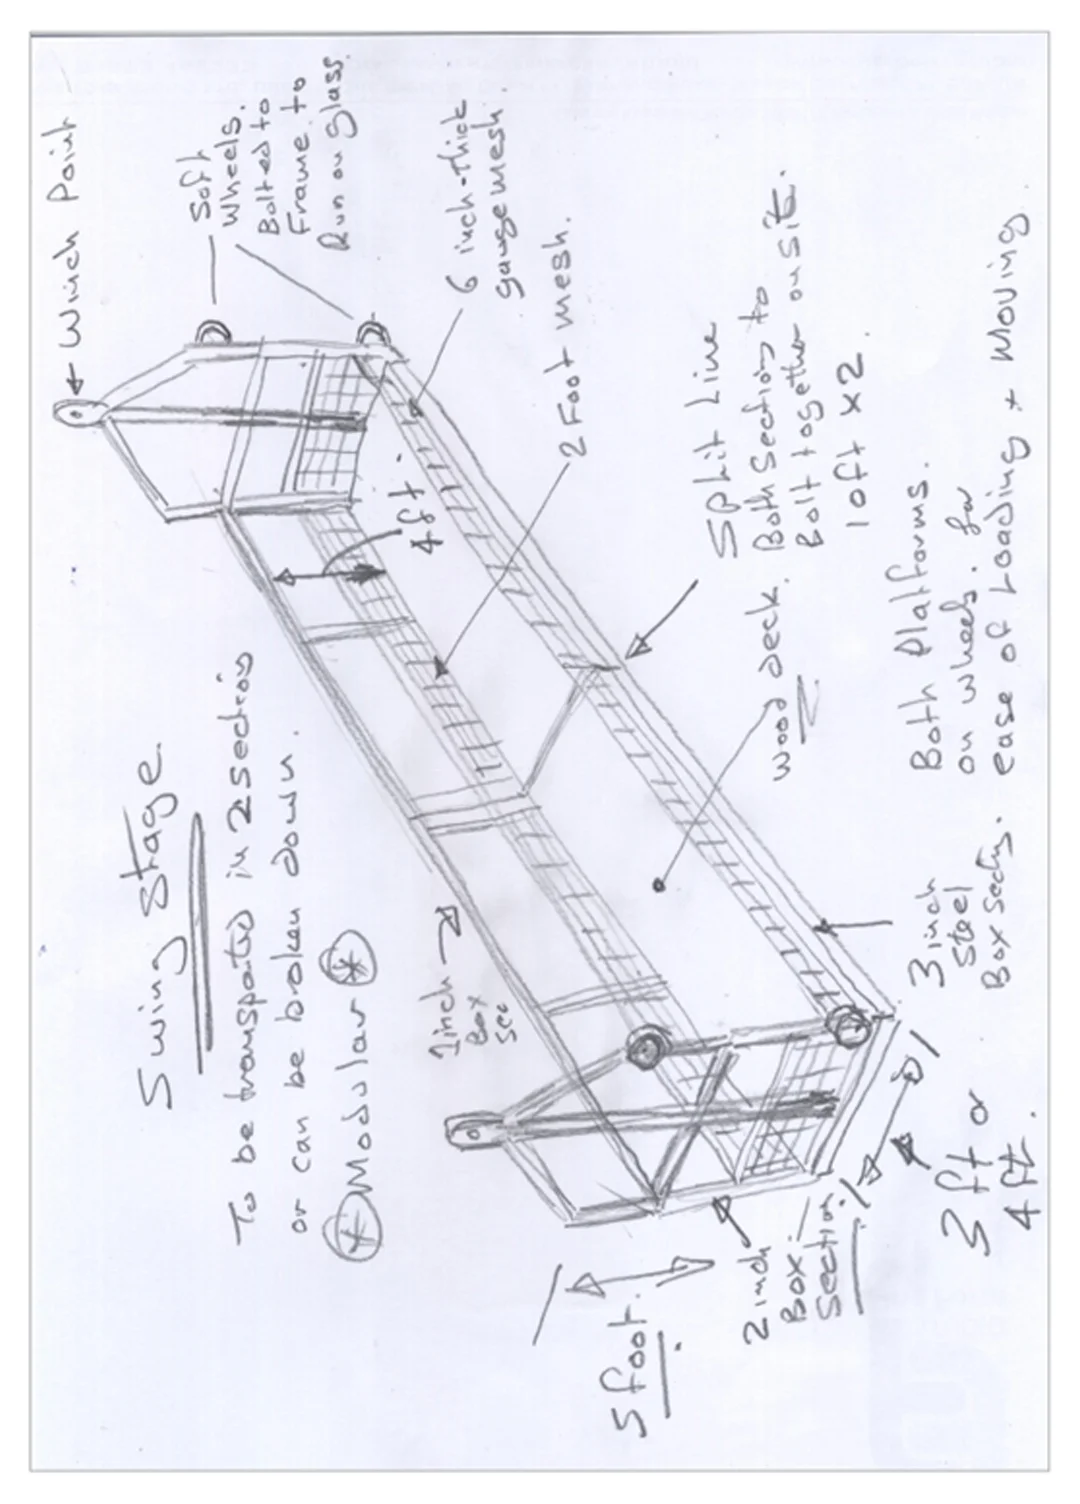 Swing Stage.
To be transpated in 2 sections
or can be broken down.
* Modular *
← Winch Point
Soft
Wheels.
Bolted to
Frame to
Run on Glass.
6 inch-thick
gauge mesh
2 Foot mesh.
4 ft.
Split Line
Both Section to
Bolt together on site.
10ft x 2
wood deck.
1inch
Box
Sec
Both Platforms.
on wheels. for
ease of Loading + Moving
3 inch
Steel
Box Secti.
5 foot.
2 inch
Box
Section.
3 ft or
4 ft.